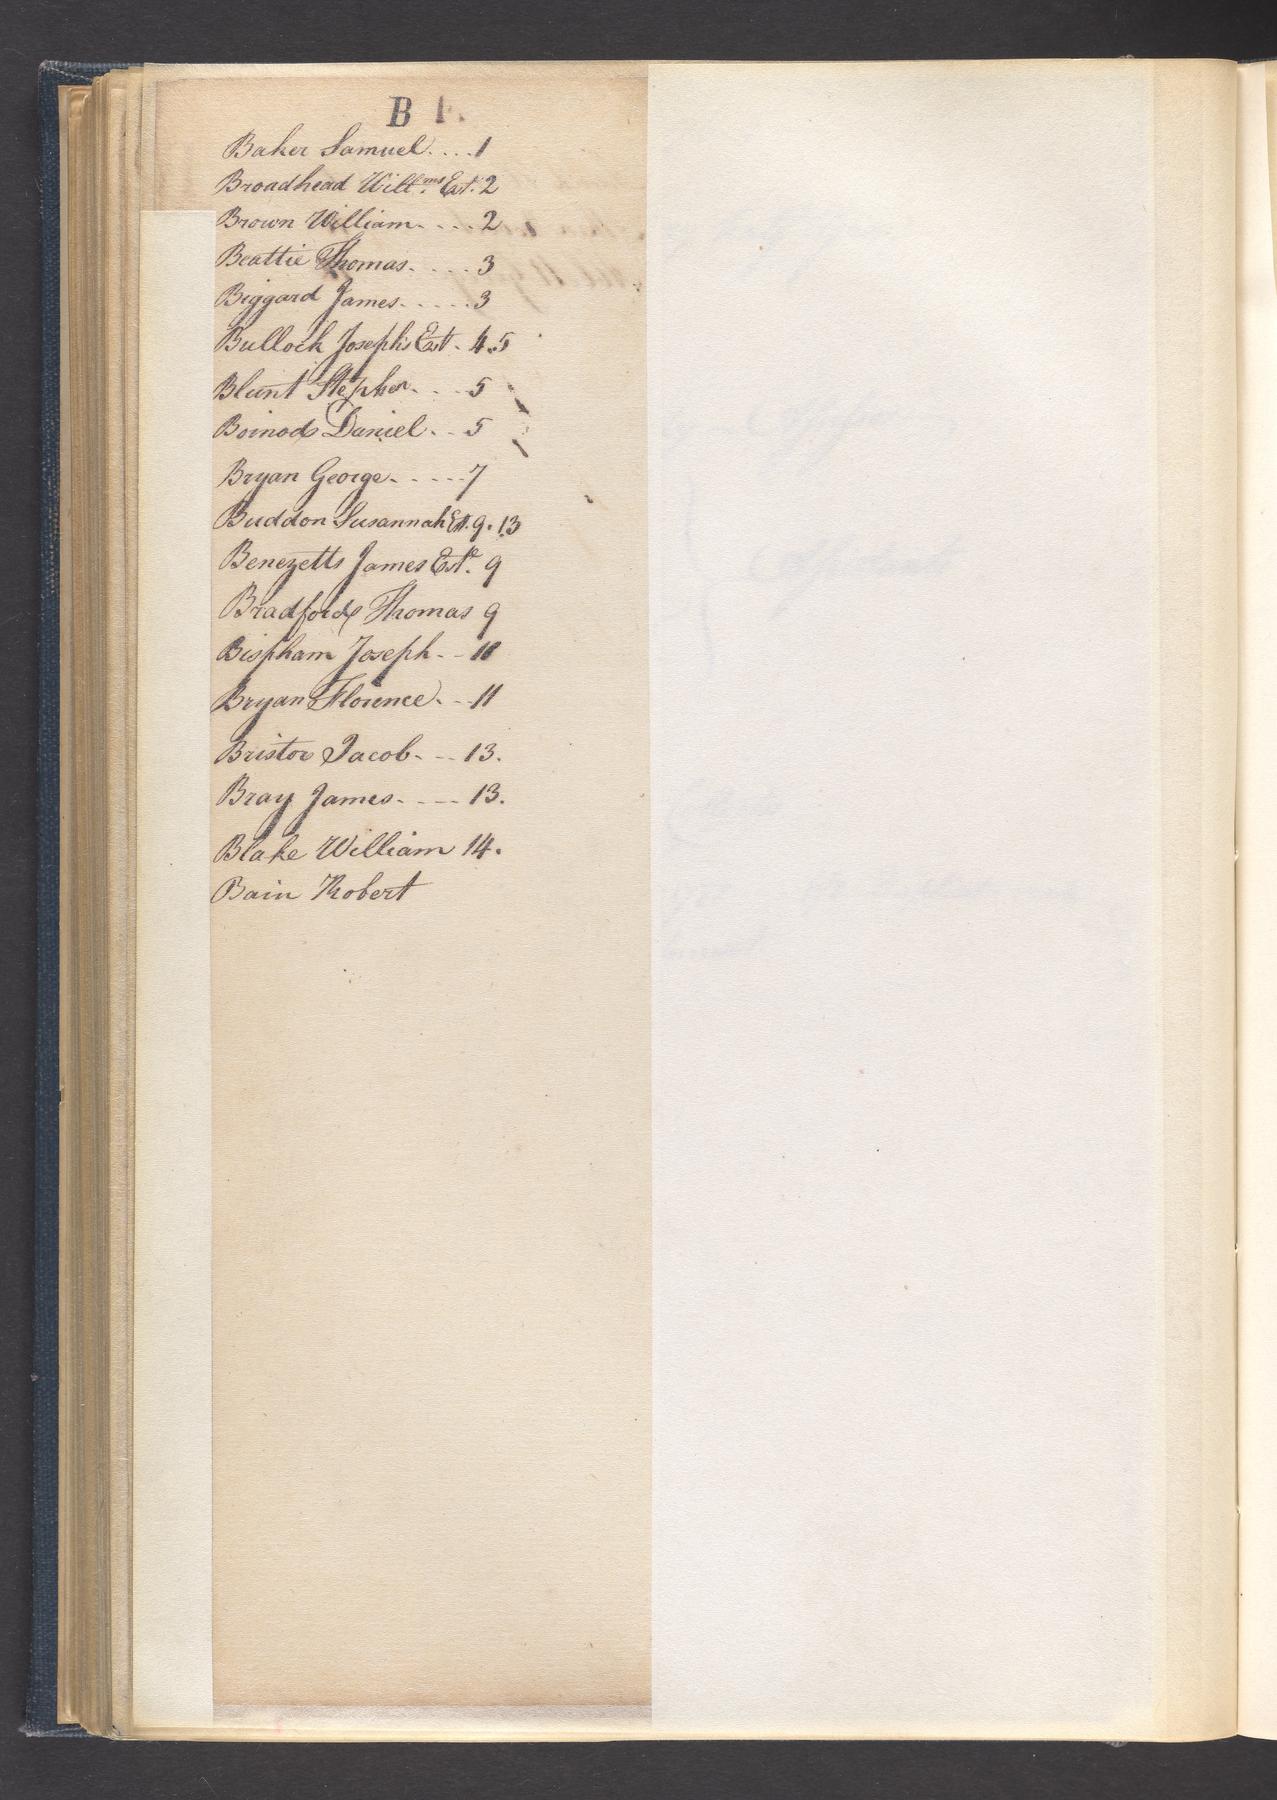 B F.
Baker Samuel....1
Broadhead Will.ms Est. 2
Brown William....2
Beattie Thomas.....3
Biggard James.....3
Bullock Joseph's Est. 4.5
Blunt Stephen....5
Boinods Daniel...5
Bryan George.....7
Buddon Susannah Est. 9.13
Benezetts James Est.e 9
Bradfords Thomas 9
Bispham Joseph...11
Bryan Florence...11
Bristor Jacob...13.
Bray James....13.
Blake William 14.
Bain Robert